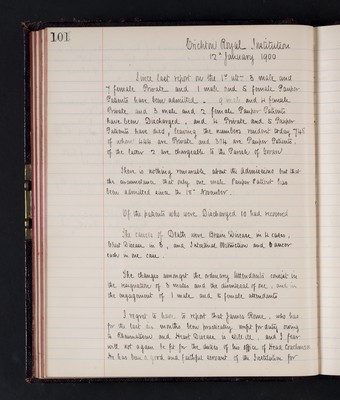 101
Crichton Royal Institution
12th January 1900
Since last report on the 1st ulto. 3 male and
7 female Private and 1 male and 5 female Pauper
Patients have been admitted - 9 male and female
Private and 3 male and 2 female Pauper Patients
have been Discharged, and Private and 5 Pauper
Patients have died, leaving the number resident today
of whom are Private and 374 are Pauper Patients,
of the latter 2 are chargeable to the Parish of Govan
There is nothing remarkable about the Admissions but that
the circumstance that only one male Pauper Patient has
been admitted since the 18th November.
Of the patients who were Discharged 10 had recovered
The causes of Death were Brain Disease in cases,
Heart Disease in 3, and Intestinal Obstruction and Cancer
each in one case.
The changes amongst the ordinary Attendants consist in
the resignation of 3 males and the dismissal of one, and in
the engagement of 1 male and 5 female attendants
I regret to have to report that James Rome, who has
for the last six months been practically unfit for duty owing
to Rheumatism and Heart Disease is still ill, and I fear
will not again be fit for the duties of his office of Head Coachman
He has been a good and faithful servant of the Institution for